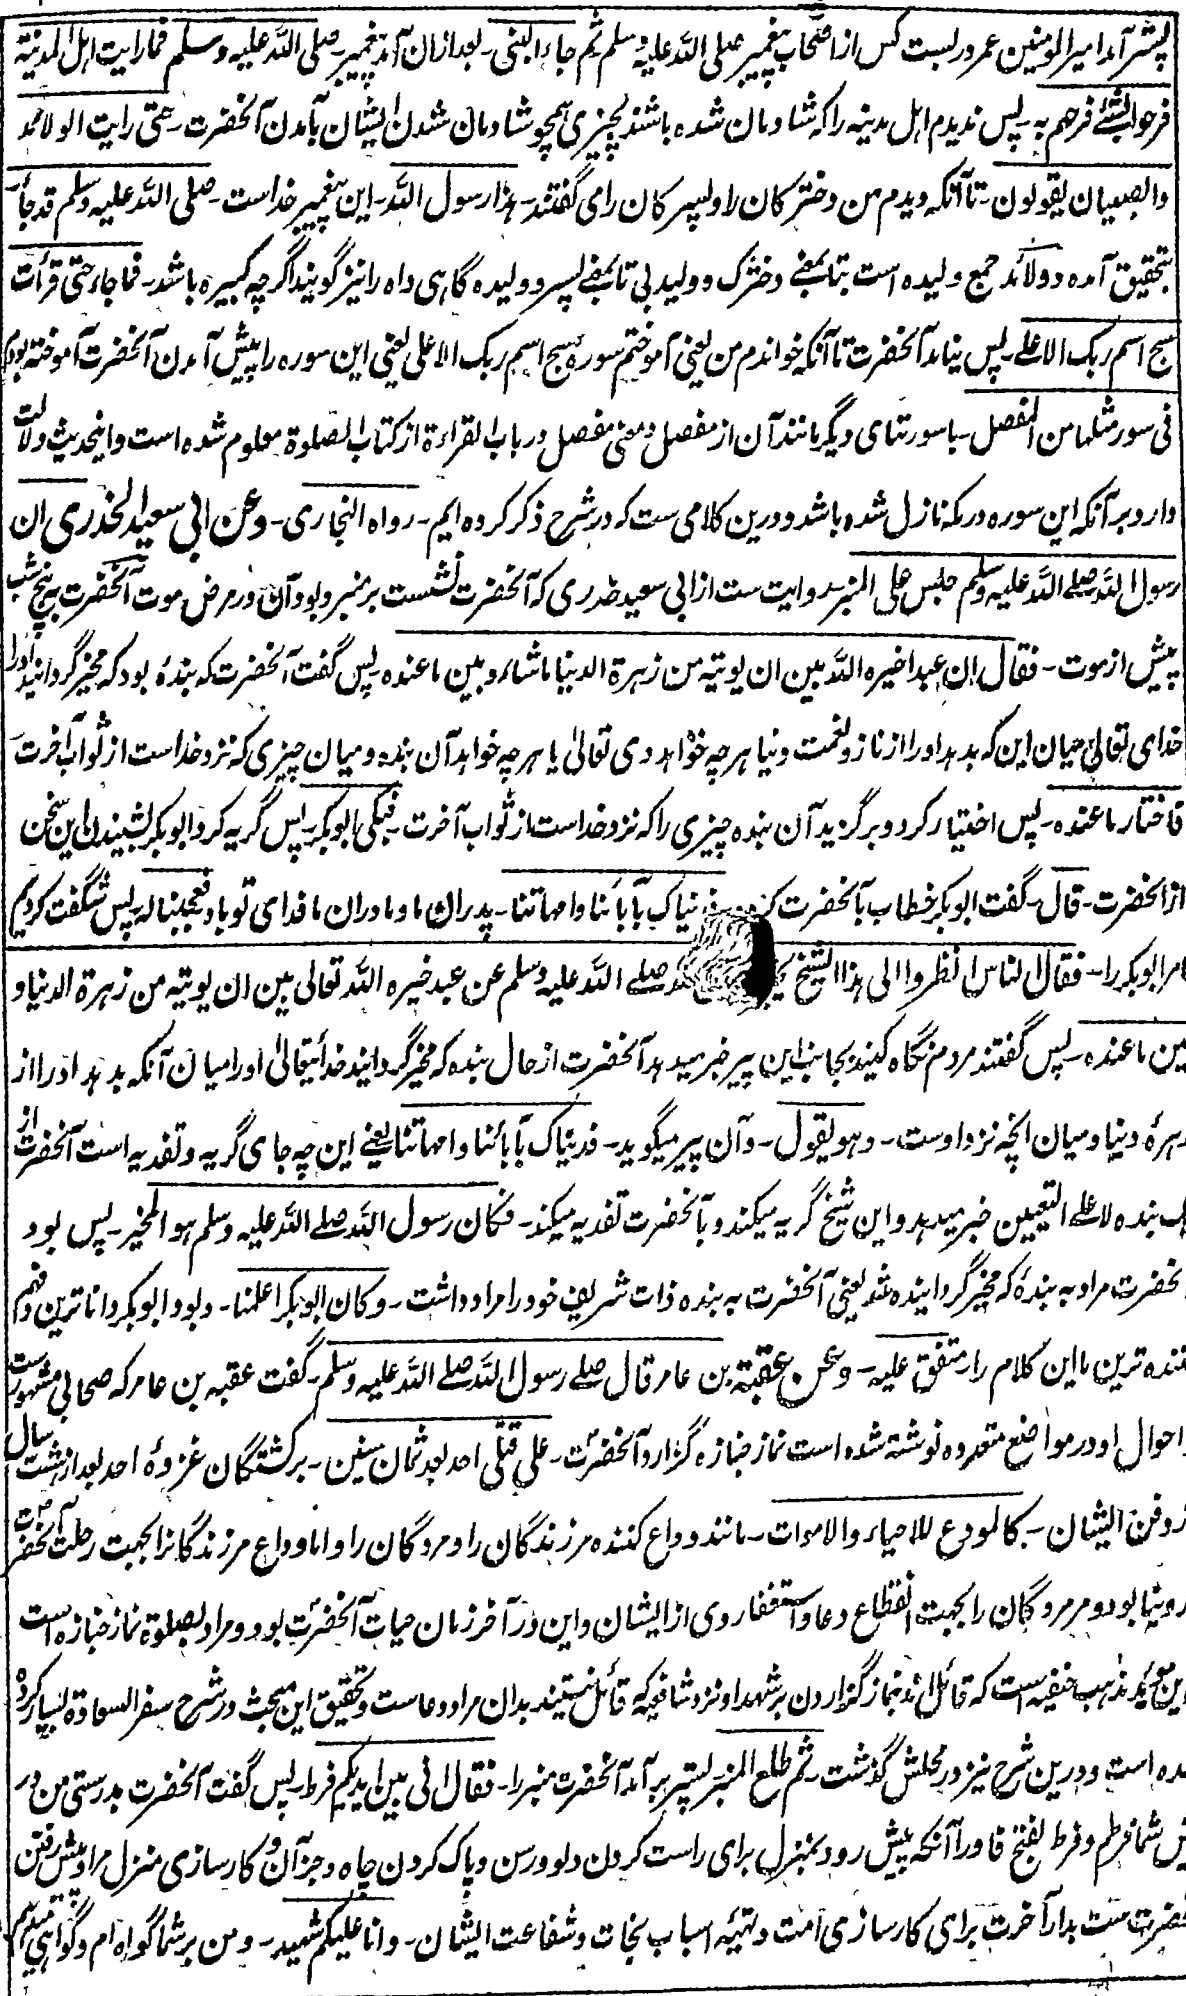 پستر آمد امیرالمومنین عمر در بست کس از اصحاب پیغمبر صلی اللّه علیه وسلم ثم جاء النبی۔ بعد ازان آمد پیغمبر۔ صلی اللّه علیه وسلم فما رایت اهل المدینة
فرحوا بشئے فرحهم به۔ پس ندیدم اهل مدینه را که شادمان شده باشند بچیزی همچو شادمان شدن ایشان بآمدن آنحضرت۔ حتی رایت الولائد
والصبیان یقولون۔ تا آنکه دیدم من دخترکان را و پسرکان را می گفتند۔ هذا رسول اللّه۔ این پیغمبر خداست۔ صلی اللّه علیه وسلم قد جاء۔
بتحقیق آمده و ولائد جمع ولیده است بتا بمعنے دخترک و ولید بی تا بمعنے پسر و ولیده گاهی داه را نیز گویند اگرچه کبیره باشد۔ فما جاء حتی قرأت
سبح اسم ربک الاعلے۔ پس نیامد آنحضرت تا آنکه خواندم من یعنی آموختم سورهٔ سبح اسم ربک الاعلی یعنی این سوره را پیش آمدن آنحضرت آموخته بودم
فی سور مثلها من المفصل۔ با سورتهای دیگر مانند آن از مفصل و معنی مفصل در باب القراءة از کتاب الصلوة معلوم شده است و اینحدیث دلالت
دارد بر آنکه این سوره در مکه نازل شده باشد و درین کلامی ست که در شرح ذکر کرده ایم۔ رواه البخاری۔ وعن ابی سعید الخدری ان
رسول اللّه صلے اللّه علیه وسلم جلس علی المنبر۔ روایت ست از ابی سعید خدری که آنحضرت نشست بر منبر و بود آن در مرض موت آنحضرت به پنج شب
پیش از موت۔ فقال ان عبدا خیره اللّه بین ان یوتیه من زهرة الدنیا ماشاء و بین ما عنده۔ پس گفت آنحضرت که بندهٔ بود که مخیر گردانید او را
خدای تعالیٰ میان این که بدهد او را از ناز و نعمت دنیا هر چه خواهد وی تعالیٰ یا هر چه خواهد آن بنده و میان چیزی که نزد خداست از ثواب آخرت۔
فاختار ما عنده۔ پس اختیار کرد و برگزید آن بنده چیزی را که نزد خداست از ثواب آخرت۔ فبکی ابوبکر۔ پس گریه کرد ابوبکر بشنیدن این سخن
از آنحضرت۔ قال۔ گفت ابوبکر خطاب بآنحضرت کرده فدیناک بآبائنا وامهاتنا۔ پدران ما و مادران ما فدای تو باد فعجبنا له۔ پس شگفت کردیم
مر ابوبکر را۔ فقال الناس انظروا الی هذا الشیخ صلے اللّه علیه وسلم عن عبد خیره اللّه تعالی بین ان یوتیه من زهرة الدنیا و
بین ما عنده۔ پس گفتند مردم نگاه کنید بجانب این پیر خبر میدهد آنحضرت از حال بنده که مخیر گردانید خدایتعالیٰ او را میان آنکه بدهد او را از
زهرهٔ دنیا و میان آنچه نزد اوست۔ وهو یقول۔ و آن پیر میگوید۔ فدیناک بآبائنا وامهاتنا یعنے این چه جای گریه و تفدیه است آنحضرت از
یک بنده لا علے التعیین خبر میدهد و این شیخ گریه میکند و بآنحضرت تفدیه میکند۔ فکان رسول اللّه صلے اللّه علیه وسلم هو المخیر۔ پس بود
آنحضرت مراد به بندهٔ که مخیر گردانیده شد یعنی آنحضرت به بنده ذات شریف خود را مراد داشت۔ وکان ابوبکر اعلمنا۔ و بود ابوبکر داناترین و فهم
کننده ترین ما این کلام را۔ متفق علیه۔ وعن عقبة بن عامر قال صلے رسول اللّه صلے اللّه علیه وسلم۔ گفت عقبه بن عامر که صحابی مشهور ست
و احوال او در مواضع متعدده نوشته شده است نماز جنازه گزارد آنحضرت۔ علی قتلی احد بعد ثمان سنین۔ بر کشتگان غزوهٔ احد بعد از هشت سال
از دفن ایشان۔ کالمودع للاحیاء والاموات۔ مانند وداع کننده مر زندگان را و مردگان را و اما وداع مر زندگانرا بجهت رحلت آنحضرت
از دنیا بود و مر مردگان را بجهت انقطاع دعا و استغفار وی از ایشان و این در آخر زمان حیات آنحضرت بود و مراد بصلوة نماز جنازه است
و این مؤید مذهب حنفیه است که قائل اند بنماز گزاردن بر شهدا و نزد شافعیه که قائل نیستند بدان مراد دعاست و تحقیق این مبحث در شرح سفر السعادة بسیار کرده
شده است و درین شرح نیز در محلش گذشت۔ ثم طلع المنبر۔ پستر بر آمد آنحضرت منبر را۔ فقال انی بین ایدیکم فرط۔ پس گفت آنحضرت بدرستی من در
پیش شما فرطم و فرط بفتح فا و را آنکه پیش رود بمنزل برای راست کردن دلو و رسن و پاک کردن چاه و جز آن و کارسازی منزل مراد پیش رفتن
آنحضرت ست بدار آخرت برای کارسازی امت و تهیهٔ اسباب نجات و شفاعت ایشان۔ وانا علیکم شهید۔ و من بر شما گواه ام و گواهی میدهم